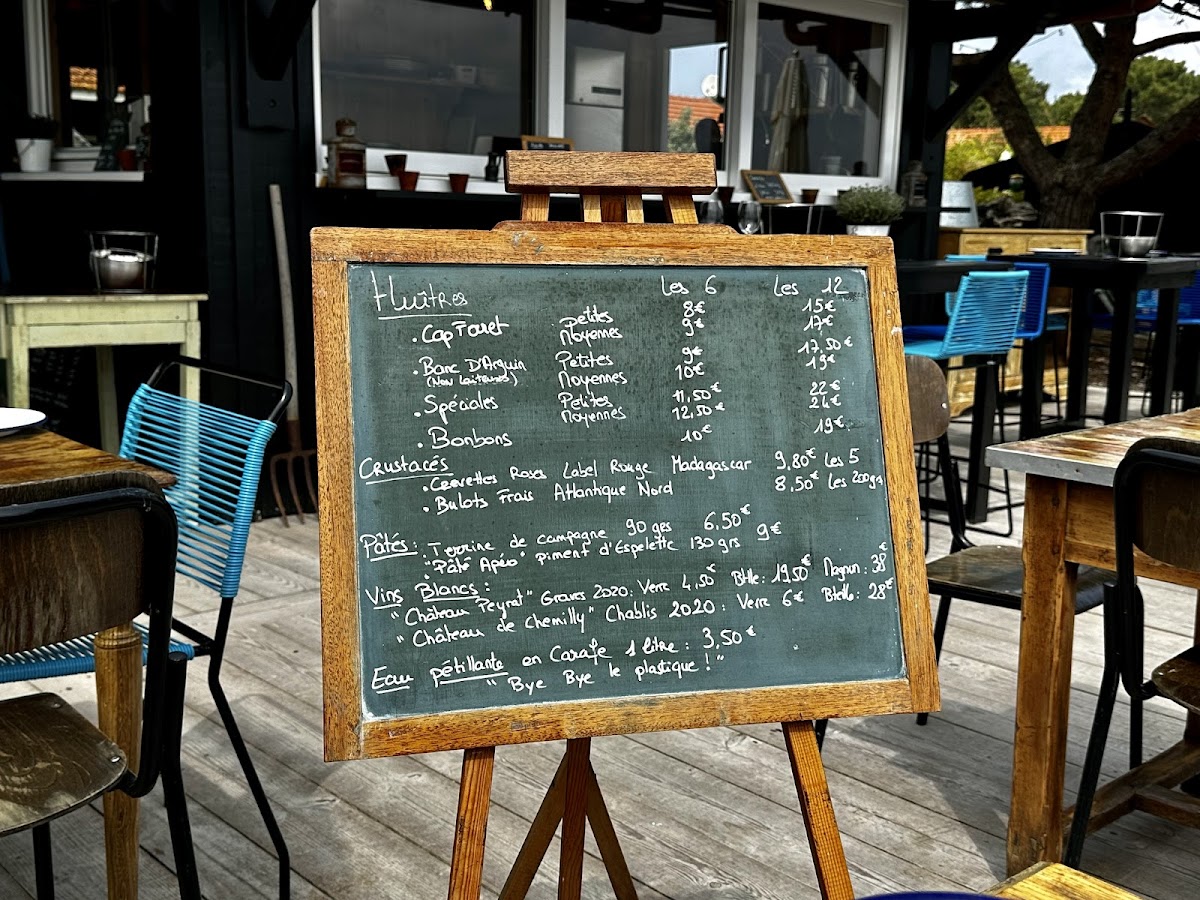 Huîtres les 6 les 12
. Cap Ferret petites 8€ 15€
Moyennes 9€ 17€
. Banc D'Arguin Petites 9€ 17,50€
(Non laiteuses) Moyennes 10€ 19€
. Spéciales Petites 11,50€ 22€
Moyennes 12,50€ 24€
. Bonbons 10€ 19€
Crustacés
. Crevettes Roses Label Rouge Madagascar 9,80€ les 5
. Bulots Frais Atlantique Nord 8,50€ les 200grs
Pâtés : "Terrine de campagne 90 grs 6,50€
"Pâté Apéro" piment d'Espelette 130 grs 9€
Vins Blancs :
"Château Peyrat" Graves 2020: Verre 4,50€ Btlle: 19,50€ Magnun: 38€
"Château de Chemilly" Chablis 2020: Verre 6€ Btelle: 28€
Eau pétillante en Carafe 1 litre : 3,50€
"Bye Bye le plastique !"